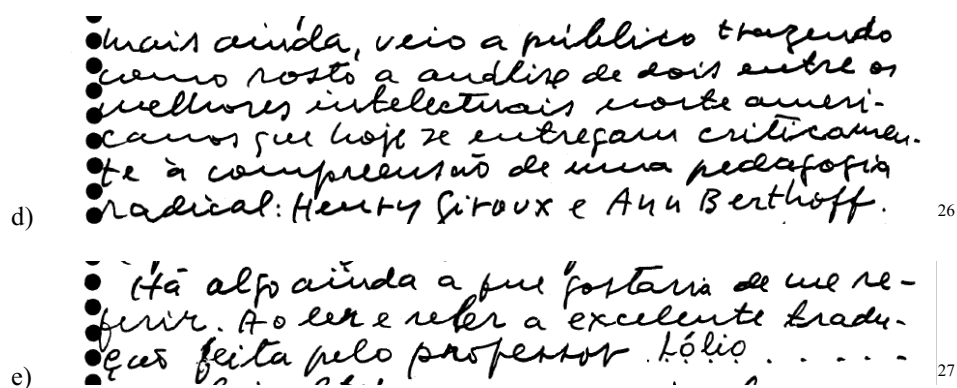 mais ainda, veio a público trazendo
como rosto a análise de dois entre os
melhores intelectuais norte ameri-
canos que hoje se entregam criticamen-
te à compreensão de uma pedagogia
d) radical: Henry Giroux e Ann Berthoff. 26
Há algo ainda a que gostaria de me re-
ferir. Ao ler e reler a excelente tradu-
ção feita pelo professor Lólio . . . . . 27
e)